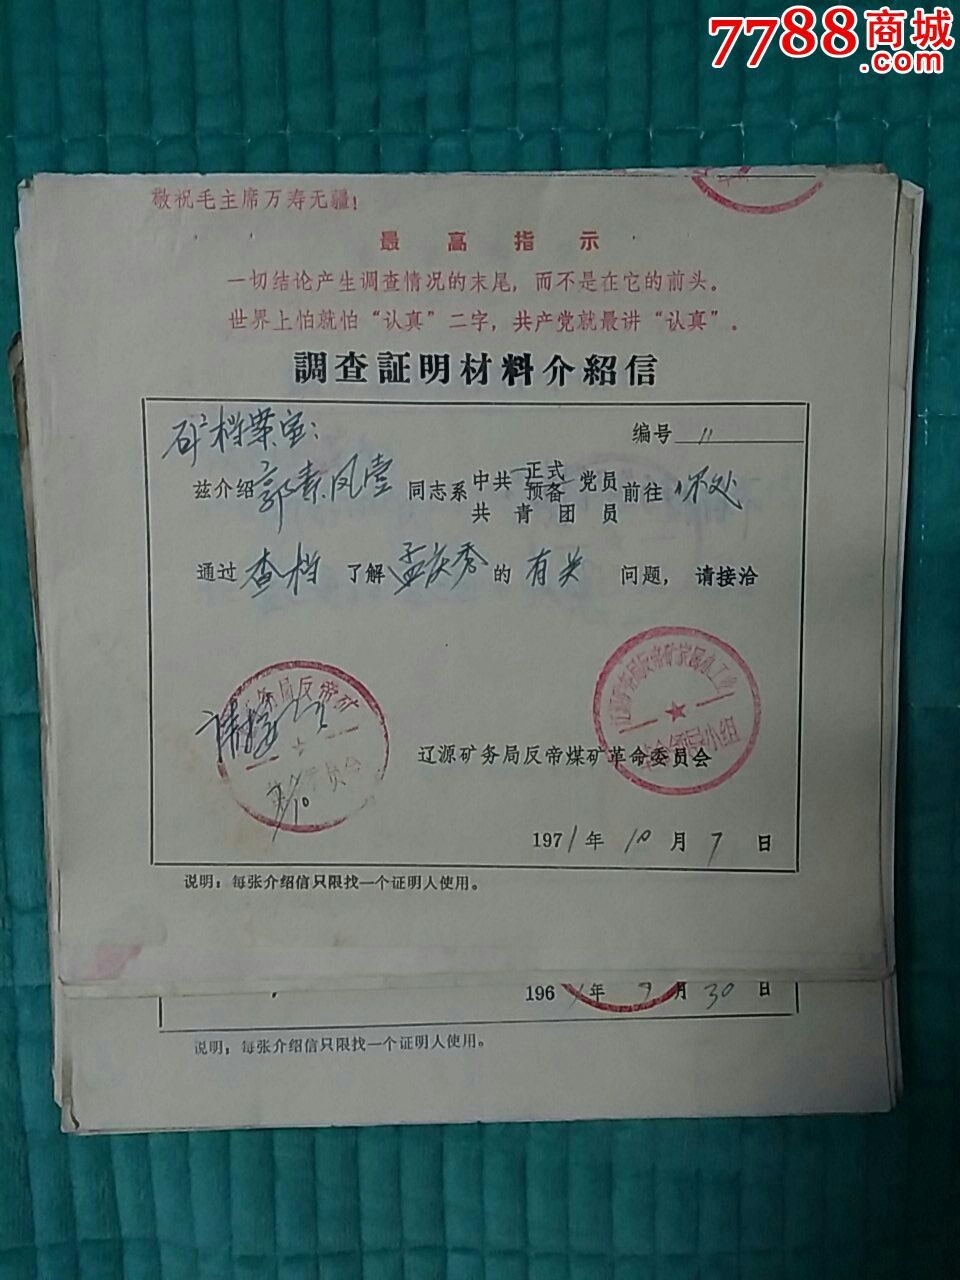 7788商城
.com
敬祝毛主席万寿无疆!
最高指示
一切结论产生调查情况的末尾，而不是在它的前头。
世界上怕就怕“认真”二字，共产党就最讲“认真”。
調查証明材料介紹信
矿档案室：
编号 11
兹介绍郭素凤壹同志系中共正式预备党员共青团员前往你处
通过查档了解孟庆秀的有关问题，请接洽
务局反帝矿
辽源矿务局反帝煤矿革命委员会
1971年10月7日
说明：每张介绍信只限找一个证明人使用。
196 年9月30日
说明：每张介绍信只限找一个证明人使用。